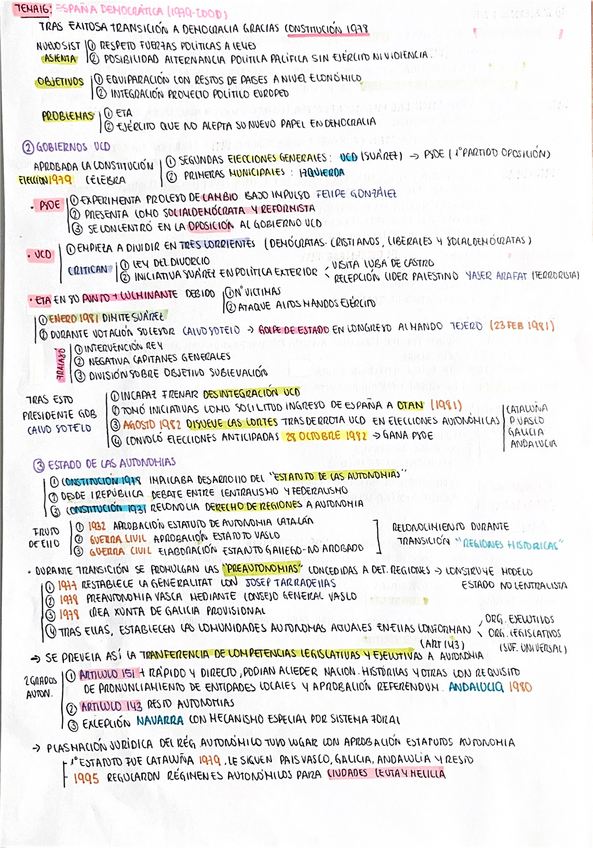 TEMA 16: ESPAÑA DEMOCRÁTICA (1979-2000)
TRAS EXITOSA TRANSICIÓN A DEMOCRALIA GRACIAS CONSTITUCIÓN 1978
NUEVO SIST ASIENTA
① RESPETO FUERZAS POLÍTICAS A LEYES
② POSIBILIDAD ALTERNANCIA POLÍTICA PACÍFICA SIN EJÉRCITO NI VIOLENCIA.
OBJETIVOS
① EQUIPARACIÓN CON RESTOS DE PAISES A NIVEL ECONÓMICO
② INTEGRACIÓN PROYECTO POLÍTICO EUROPEO
PROBLEMAS
① ETA
② EJÉRCITO QUE NO ACEPTA SU NUEVO PAPEL EN DEMOCRACIA
② GOBIERNOS UCD
APROBADA LA CONSTITUCIÓN
ELECCIÓN 1979 CELEBRA
① SEGUNDAS ELECCIONES GENERALES: UCD (SUÁREZ) → PSOE (1º PARTIDO OPOSICIÓN)
② PRIMERAS MUNICIPALES: IZQUIERDA
· PSOE
① EXPERIMENTA PROCESO DE CAMBIO BAJO IMPULSO FELIPE GONZÁLEZ
② PRESENTA COMO SOCIALDEMÓCRATA Y REFORMISTA
③ SE CONCENTRÓ EN LA OPOSICIÓN AL GOBIERNO UCD
· UCD
① EMPIEZA A DIVIDIR EN TRES CORRIENTES (DEMÓCRATAS-CRISTIANOS, LIBERALES Y SOCIALDEMÓCRATAS)
CRITICAN
① LEY DEL DIVORCIO
② INICIATIVA SUÁREZ EN POLÍTICA EXTERIOR
VISITA CUBA DE CASTRO
RECEPCIÓN LÍDER PALESTINO YASER ARAFAT (TERRORISTA)
· ETA EN SU PUNTO + CULMINANTE DEBIDO
① Nº VÍCTIMAS
② ATAQUE ALTOS MANDOS EJÉRCITO
① ENERO 1981 DIMITE SUÁREZ
② DURANTE VOTACIÓN SUCESOR CALVO SOTELO → GOLPE DE ESTADO EN CONGRESO AL MANDO TEJERO (23 FEB 1981)
FRACASO
① INTERVENCIÓN REY
② NEGATIVA CAPITANES GENERALES
③ DIVISIÓN SOBRE OBJETIVO SUBLEVACIÓN
TRAS ESTO PRESIDENTE GOB CALVO SOTELO
① INCAPAZ FRENAR DESINTEGRACIÓN UCD
② TOMÓ INICIATIVAS COMO SOLICITUD INGRESO DE ESPAÑA A OTAN (1981)
③ AGOSTO 1982 DISUELVE LAS CORTES TRAS DERROTA UCD EN ELECCIONES AUTONÓMICAS
CATALUÑA
P. VASCO
GALICIA
ANDALUCÍA
④ CONVOCÓ ELECCIONES ANTICIPADAS 28 OCTUBRE 1982 → GANA PSOE
③ ESTADO DE LAS AUTONOMÍAS
① CONSTITUCIÓN 1978 IMPLICABA DESARROLLO DEL "ESTATUTO DE LAS AUTONOMÍAS"
② DESDE I REPÚBLICA DEBATE ENTRE CENTRALISMO Y FEDERALISMO
③ CONSTITUCIÓN 1931 RECONOCÍA DERECHO DE REGIONES A AUTONOMÍA
FRUTO DE ELLO
① 1932 APROBACIÓN ESTATUTO DE AUTONOMÍA CATALÁN
② GUERRA CIVIL APROBACIÓN ESTATUTO VASCO
③ GUERRA CIVIL ELABORACIÓN ESTATUTO GALLEGO - NO APROBADO
RECONOCIMIENTO DURANTE TRANSICIÓN "REGIONES HISTÓRICAS"
· DURANTE TRANSICIÓN SE PROMULGAN LAS "PREAUTONOMÍAS" CONCEDIDAS A DET. REGIONES → CONSTRUYE MODELO ESTADO NO CENTRALISTA
① 1977 RESTABLECE LA GENERALITAT CON JOSEP TARRADELLAS
② 1978 PREAUTONOMÍA VASCA MEDIANTE CONSEJO GENERAL VASCO
③ 1978 CREA XUNTA DE GALICIA PROVISIONAL
④ TRAS ELLAS, ESTABLECEN LAS COMUNIDADES AUTÓNOMAS ACTUALES EN ELLAS CONFORMAN (ART 143)
ORG. EJECUTIVOS
ORG. LEGISLATIVOS (SUF. UNIVERSAL)
→ SE PREVEÍA ASÍ LA TRANFERENCIA DE COMPETENCIAS LEGISLATIVAS Y EJECUTIVAS A AUTONOMÍA
2 GRADOS AUTON.
① ARTÍCULO 151 + RÁPIDO Y DIRECTO, PODÍAN ACCEDER NACION. HISTÓRICAS Y OTRAS CON REQUISITO
DE PRONUNCIAMIENTO DE ENTIDADES LOCALES Y APROBACIÓN REFERENDUM. ANDALUCÍA, 1980
② ARTÍCULO 143 RESTO AUTONOMÍAS
③ EXCEPCIÓN NAVARRA CON MECANISMO ESPECIAL POR SISTEMA FORAL
→ PLASMACIÓN JURÍDICA DEL RÉG. AUTONÓMICO TUVO LUGAR CON APROBACIÓN ESTATUTOS AUTONOMÍA
1º ESTATUTO FUE CATALUÑA 1979, LE SIGUEN PAIS VASCO, GALICIA, ANDALUCÍA Y RESTO
1995 REGULARON RÉGIMENES AUTONÓMICOS PARA CIUDADES CEUTA Y MELILLA